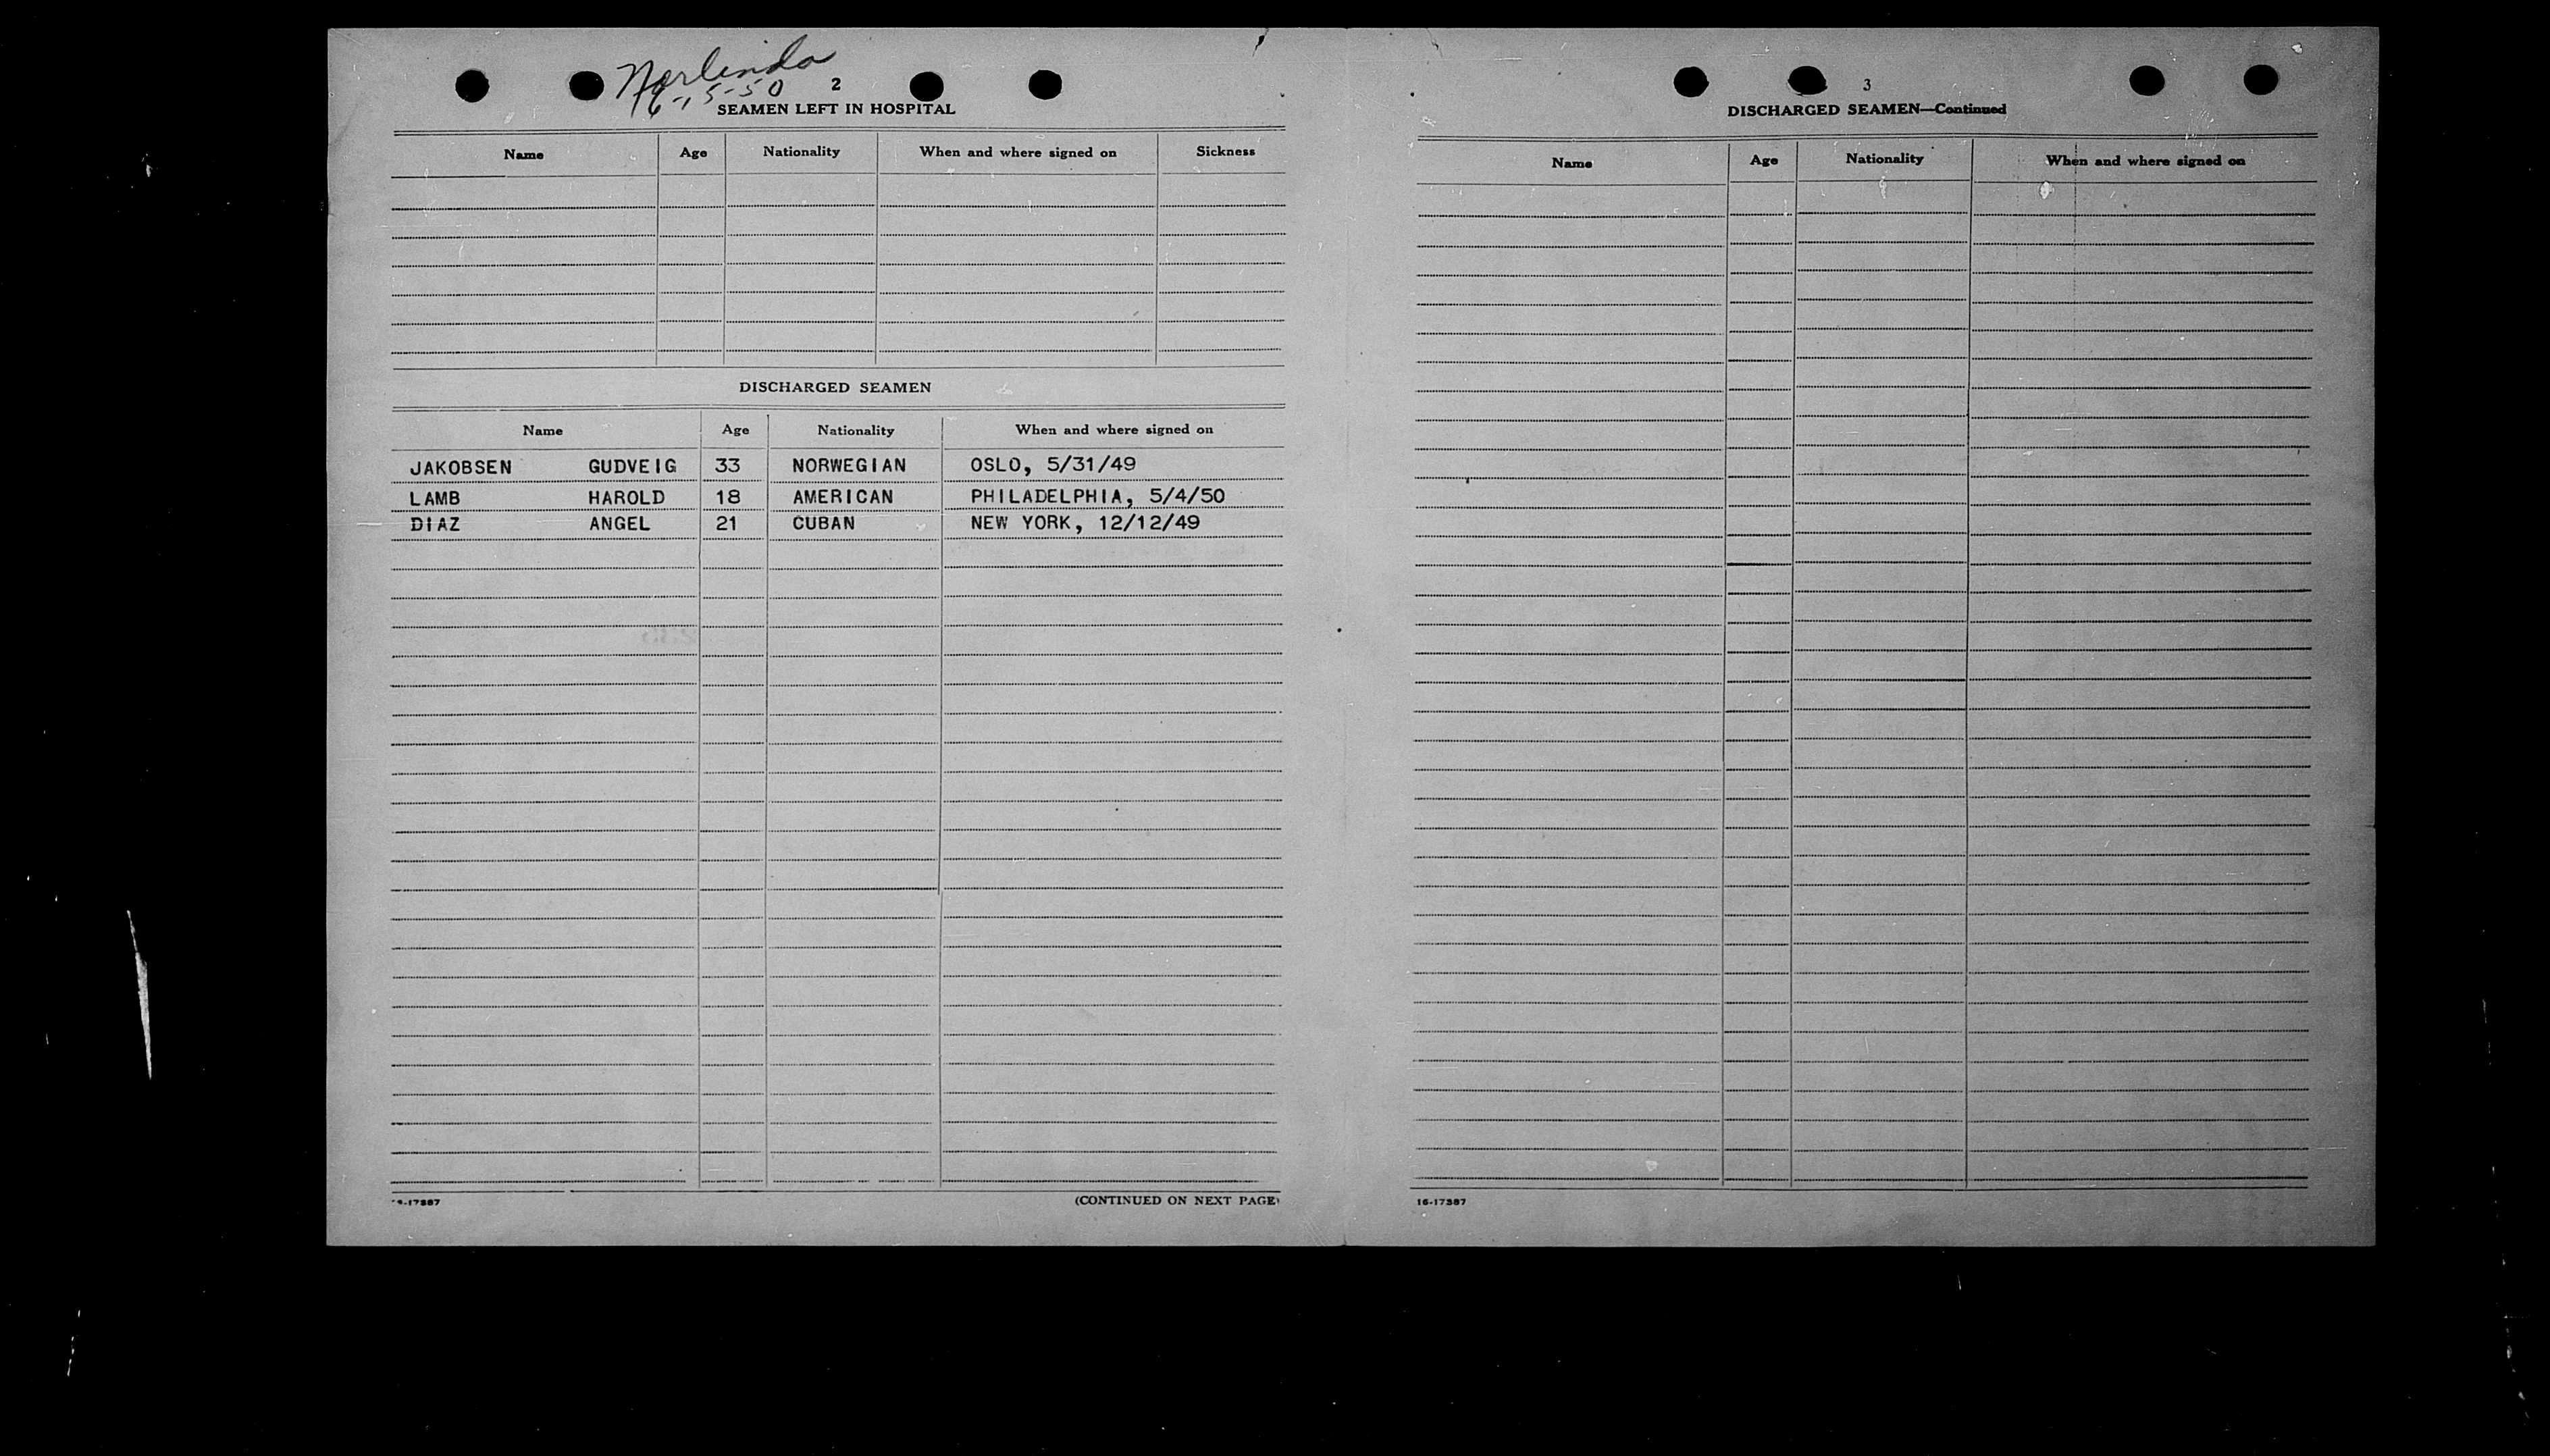 Norlinda
6-15-50
2
SEAMEN LEFT IN HOSPITAL
Name Age Nationality When and where signed on Sickness
DISCHARGED SEAMEN
Name Age Nationality When and where signed on
JAKOBSEN GUDVEIG 33 NORWEGIAN OSLO, 5/31/49
LAMB HAROLD 18 AMERICAN PHILADELPHIA, 5/4/50
DIAZ ANGEL 21 CUBAN NEW YORK, 12/12/49
(CONTINUED ON NEXT PAGE)
3
DISCHARGED SEAMEN—Continued
Name Age Nationality When and where signed on
16-17387